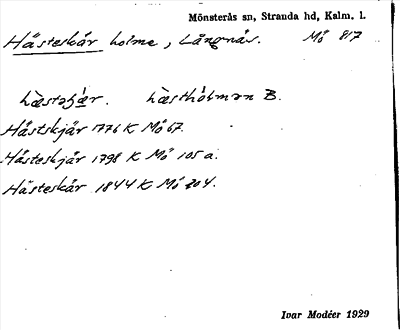 Mönsterås sn, Stranda hd, Kalm. l.
Hästeskär holme, Långnäs. Mö 817
hæstəʃær. hæsthólmən B.
Hästskjär 1776 K Mö 67.
Hästeskjär 1798 K Mö 105 a.
Hästeskär 1844 K Mö 204.
Ivar Modéer 1929